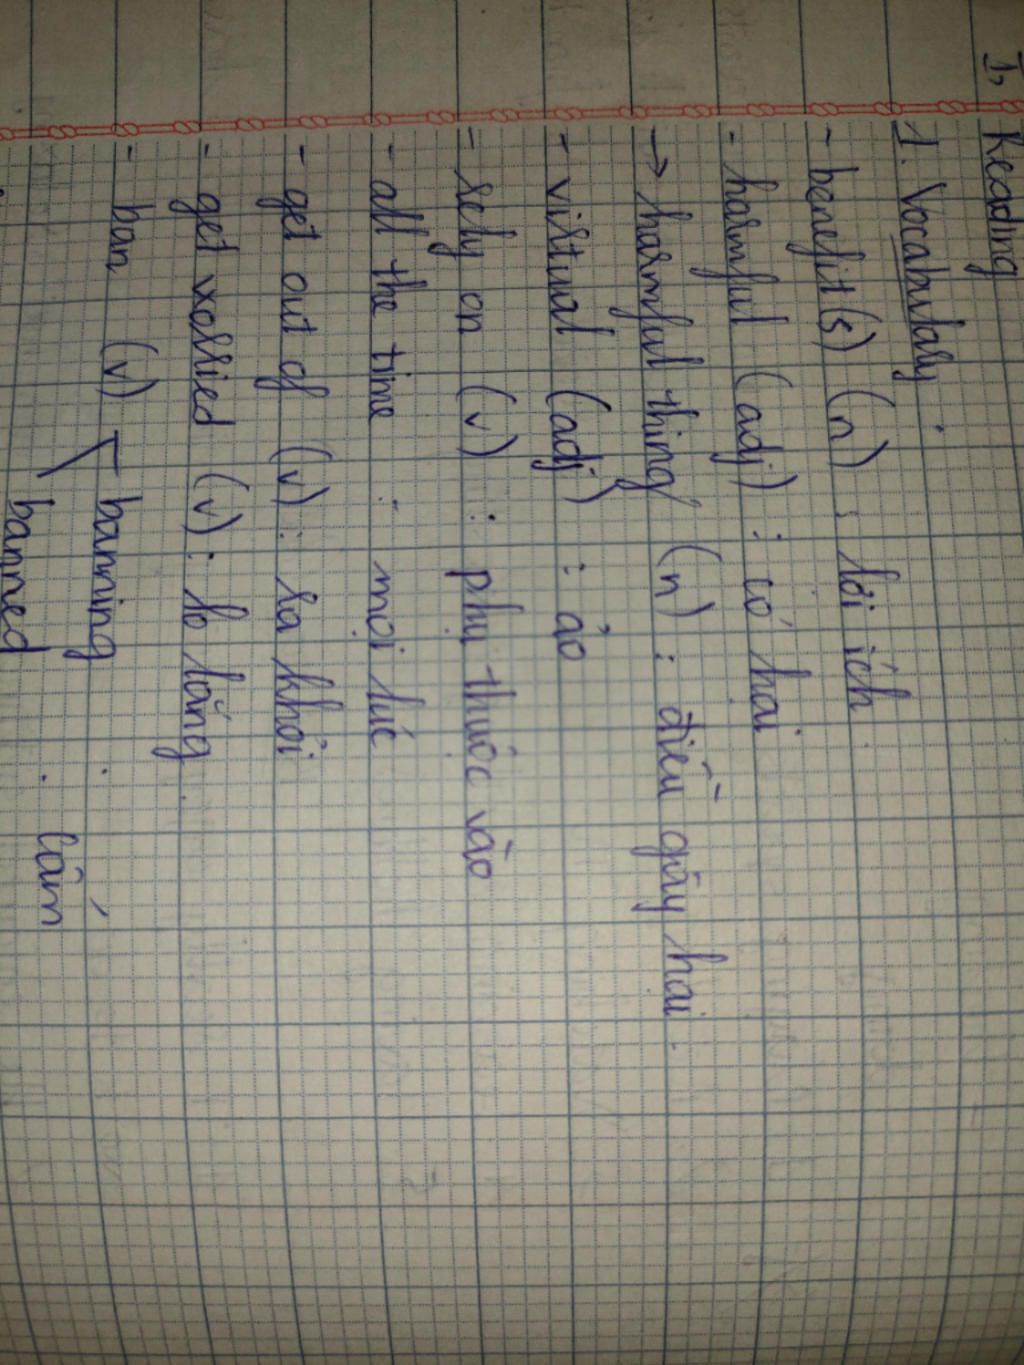 I, Reading
1. Vocabulary.
- benefit(s) (n) : lợi ích
- harmful (adj) : có hại
→ harmful thing (n) : điều gây hại.
- virtual (adj) : ảo
- rely on (v) : phụ thuộc vào
- all the time : mọi lúc
- get out of (v) : ra khỏi
- get worried (v) : lo lắng.
- ban (v) banning : cấm
banned